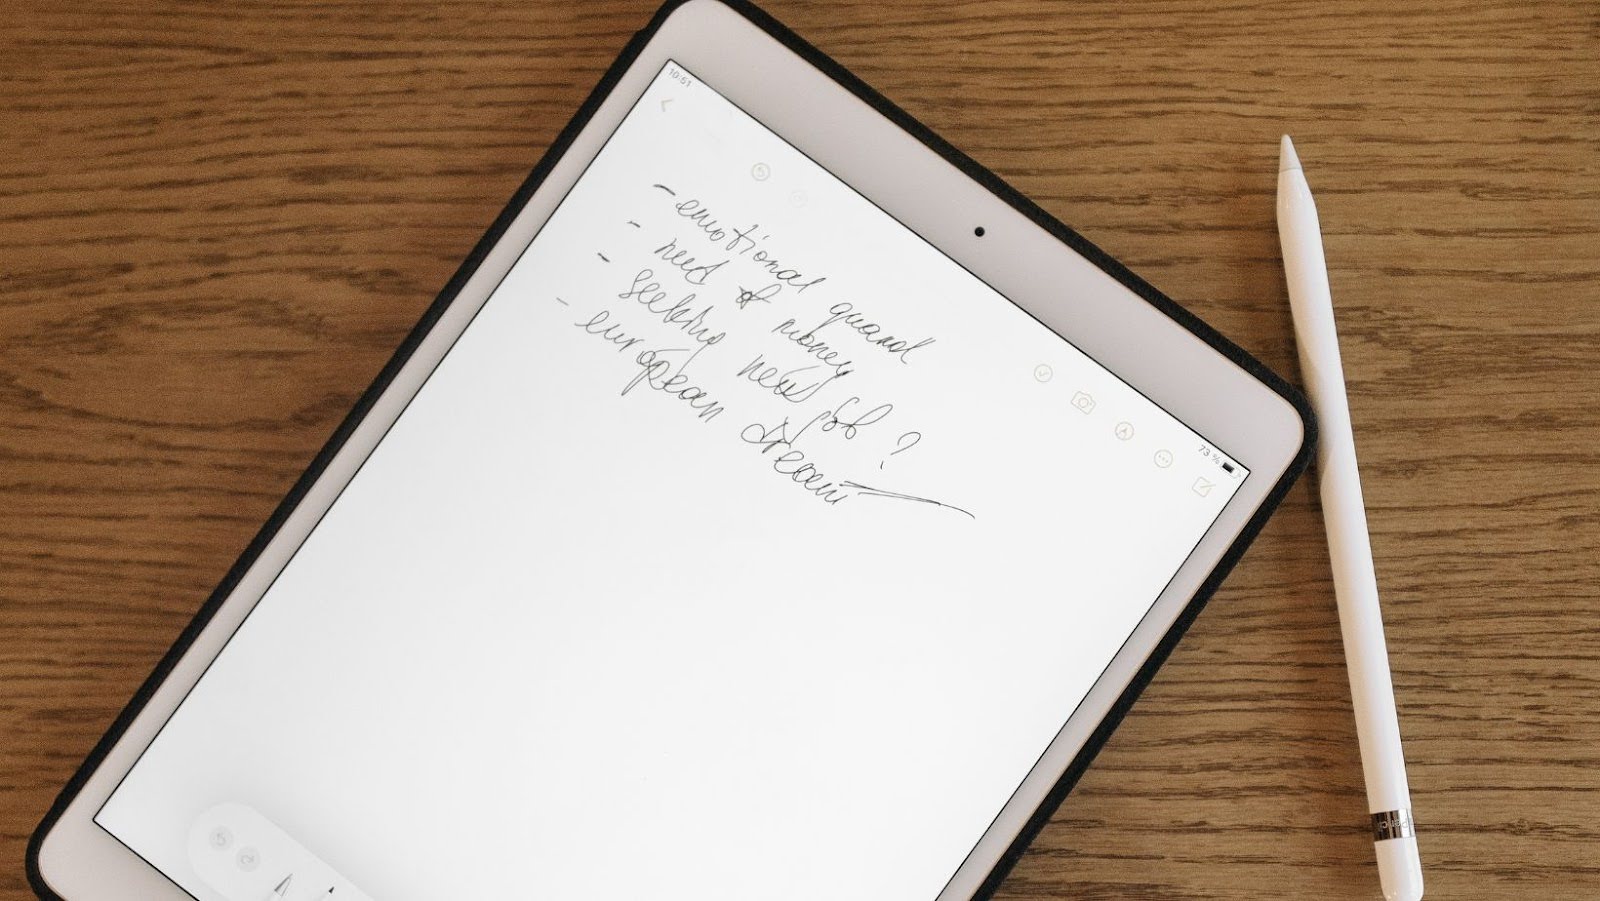 10:51
- emotional quand
- need of money
- seeking new job ?
- european dream
73 %